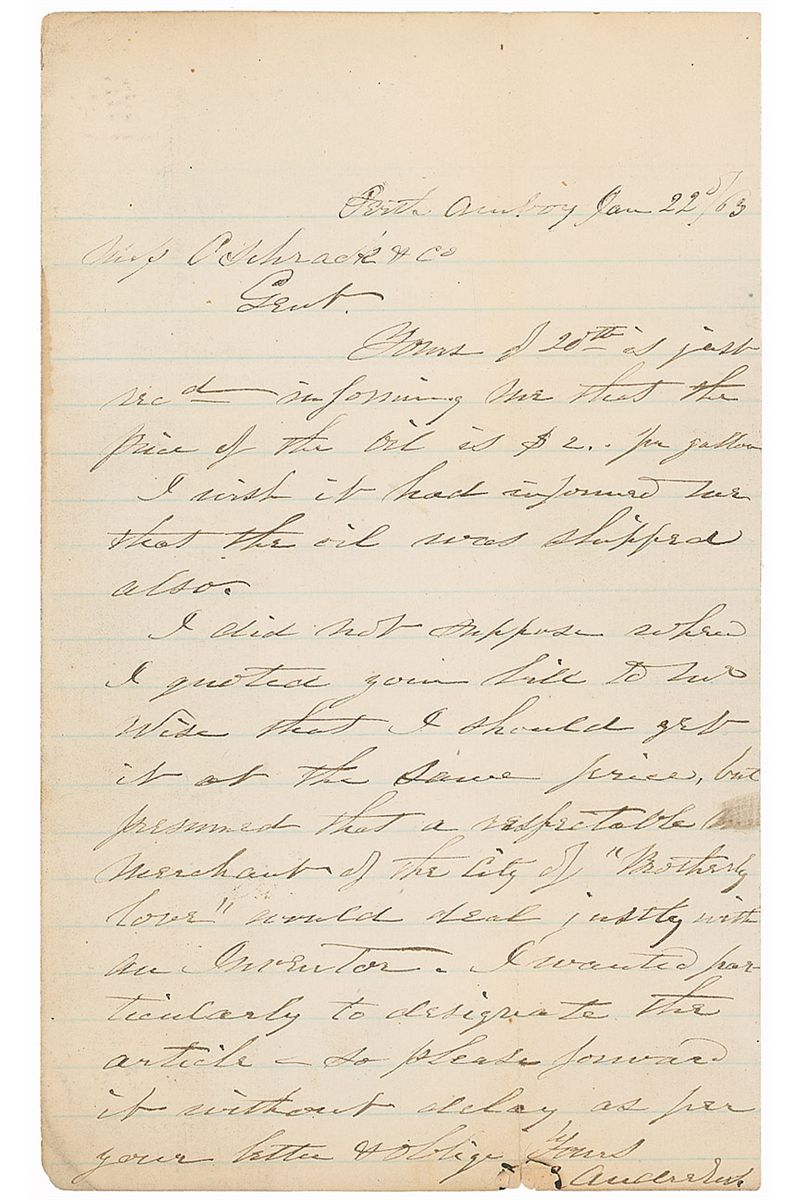 Perth Amboy Jan 22d/63
Messrs C Schrack & Co
Gent.
Yours of 20th is just
recd informing me that the
price of the oil is $2.. per gallon
I wish it had informed me
that the oil was shipped
also.
I did not suppose when
I quoted your bill to Mr
Wise that I should get
it at the same price, but
presumed that a respectable
merchant of the City of "Brotherly
love" would deal justly with
an Inventor. I wanted par
ticularly to designate the
article – so please forward
it without delay as per
your letter & oblige Yours